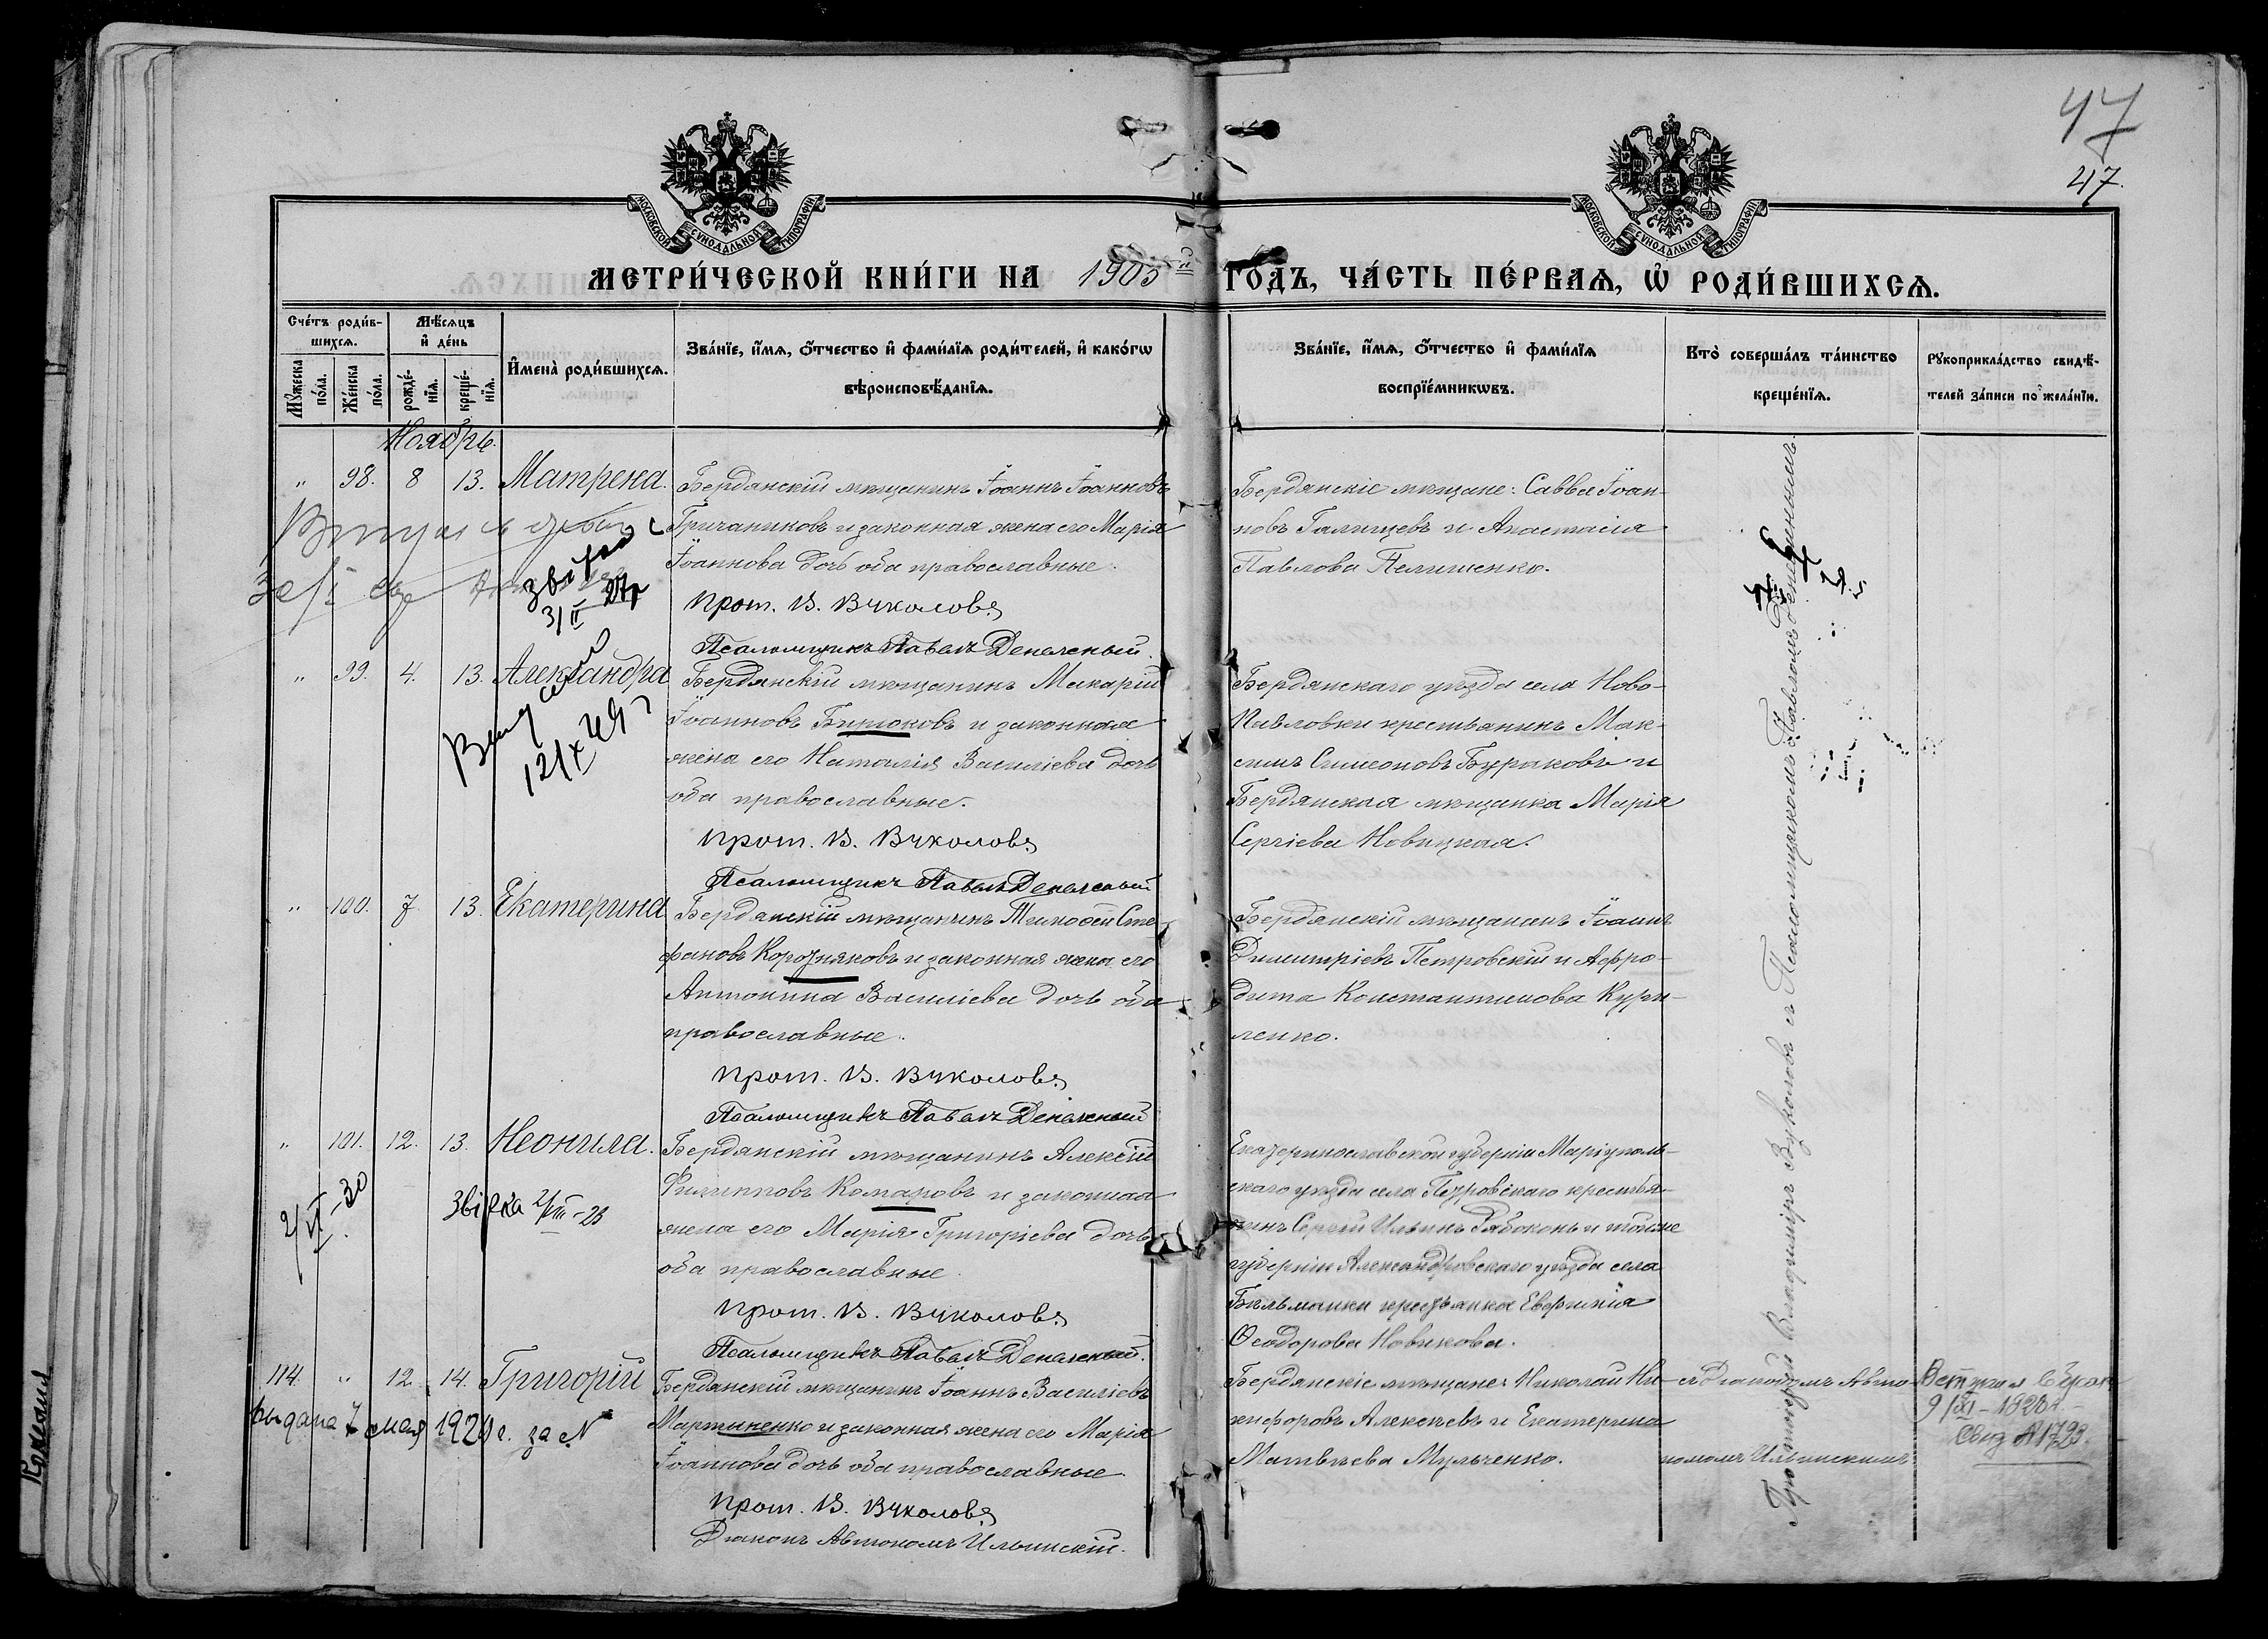 47
47.
МОСКОВСКОЙ СѴНОДАЛЬНОЙ ТИПОГРАФІИ
МОСКОВСКОЙ СѴНОДАЛЬНОЙ ТИПОГРАФІИ
МЕТРИ́ЧЕСКОЙ КНИ́ГИ НА 1905 й ГО́ДЪ, ЧА́СТЬ ПЕ́РВАѦ, Ѡ҆ РОДИ́ВШИХСѦ.
Сче́тъ роди́вшихсѧ.
Мꙋ́жеска по́ла.
Же́нска по́ла.
Мѣ́сѧцъ и҆ де́нь
рожде́нїѧ.
креще́нїѧ.
И҆мена̀ роди́вшихсѧ.
Зва́нїе, и҆́мѧ, ѻ҆́тчество и҆ фами́лїѧ роди́телей, и҆ како́гѡ
вѣроисповѣ́данїѧ.
Зва́нїе, и҆́мѧ, ѻ҆́тчество и҆ фами́лїѧ
воспрїе́мникѡвъ.
Кто̀ соверша́лъ та́инство
креще́нїѧ.
Рꙋкоприкла́дство свидѣ́-
телей за́писи по жела́нїю.
Ноябрь.
" 98. 8 13. Матрена.
Бердянскій мѣщанинъ Іоаннъ Іоанновъ
Гричаниковъ и законная жена его Марія
Іоаннова дочь оба православные.
Прот. В. Вуколовъ
Псаломщикъ Павелъ Денежный.
Бердянскіе мѣщане: Савва Іоан-
новъ Галищевъ и Анастасія
Павлова Пелишенко.
звірено
3/II 27р
" 99. 4. 13. Александра
Бердянскій мѣщанинъ Макарій
Іоанновъ Бирюковъ и законная
жена его Наталія Василіева дочь
оба православные.
Прот. В. Вуколовъ
Псаломщикъ Павелъ Денежный
Бердянскаго уѣзда села Ново-
Павловки крестьянинъ Мак-
симъ Симеоновъ Бураковъ и
Бердянская мѣщанка Марія
Сергіева Новицкая.
" 100. 7. 13. Екатерина
Бердянскій мѣщанинъ Тимоѳей Сте-
фановъ Корозняковъ и законная жена его
Антонина Василіева дочь оба
православные.
Прот. В. Вуколовъ
Псаломщикъ Павелъ Денежный
Бердянскій мѣщанинъ Іоаннъ
Димитріевъ Петровскій и Афро-
дита Константинова Кури-
ленко.
" 101. 12. 13. Неонила.
Бердянскій мѣщанинъ Алексій
Филипповъ Комаровъ и законная
жена его Марія Григоріева дочь
оба православные.
Прот. В. Вуколовъ
Псаломщикъ Павелъ Денежный.
Екатеринославской губерніи Маріуполь-
скаго уѣзда села Петровскаго крестья-
нинъ Сергій Ильинъ Рябоконь и тойже
губерніи Александровскаго уѣзда села
Бѣльманки крестьянка Евфимія
Ѳеодорова Новикова.
2/VI-30
Звірка 2/III-23
114. " 12. 14. Григорій
Бердянскій мѣщанинъ Іоаннъ Василіевъ
Мартыненко и законная жена его Марія
Іоаннова дочь оба православные
Прот. В. Вуколовъ
Діаконъ Автономъ Ильинскій.
Бердянскіе мѣщане: Николай Ни-
кифоровъ Алексѣевъ и Екатерина
Матвѣева Мульченко.
съ Діакономъ Авто-
номомъ Ильинскимъ
выдана 7 мая 1920 г. за №
Протоіерей Владиміръ Вуколовъ съ Псаломщикомъ Павломъ Денежнымъ.